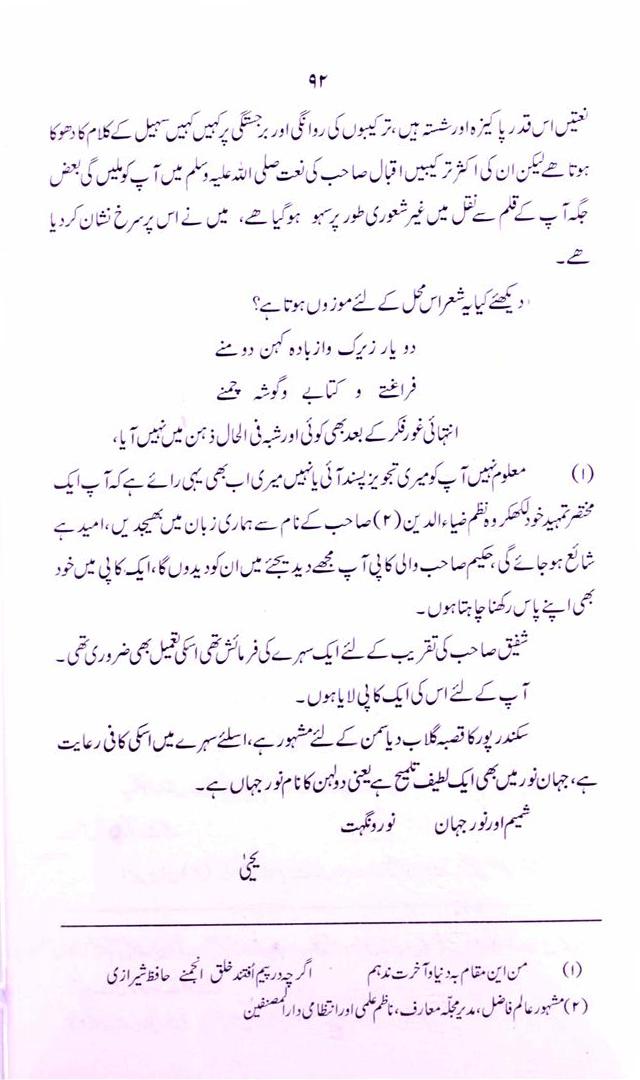 ۹۲
نعتیں اس قدر پاکیزہ اور شستہ ہیں، ترکیبوں کی روانگی اور برجستگی پر کہیں کہیں سہیل کے کلام کا دھوکا
ہوتا ھے لیکن ان کی اکثر ترکیبیں اقبال صاحب کی نعت صلی اللہ علیہ وسلم میں آپ کو ملیں گی بعض
جگہ آپ کے قلم سے نقل میں غیر شعوری طور پر سہو ہو گیا ھے، میں نے اس پر سرخ نشان کر دیا
ھے۔
دیکھئے کیا یہ شعر اس محل کے لئے موزوں ہوتا ہے؟
دو یار زیرک و از بادہ کہن دو منے
فراغتے و کتابے و گوشہ چمنے
انتہائی غور فکر کے بعد بھی کوئی اور شبہ فی الحال ذہن میں نہیں آیا،
(۱) معلوم نہیں آپ کو میری تجویز پسند آئی یا نہیں میری اب بھی یہی رائے ہے کہ آپ ایک
مختصر تمہید خود لکھکر وہ نظم ضیاء الدین (۲) صاحب کے نام سے ہماری زبان میں بھیجدیں، امید ہے
شائع ہو جائے گی، حکیم صاحب والی کاپی آپ مجھے دیدیجئے میں ان کو دیدوں گا، ایک کاپی میں خود
بھی اپنے پاس رکھنا چاہتا ہوں۔
شفیق صاحب کی تقریب کے لئے ایک سہرے کی فرمائش تھی اسکی تعمیل بھی ضروری تھی۔
آپ کے لئے اس کی ایک کاپی لایا ہوں۔
سکندر پور کا قصبہ گلاب و یاسمن کے لئے مشہور ہے، اسلئے سہرے میں اسکی کافی رعایت
ہے، جہان نور میں بھی ایک لطیف تلمیح ہے یعنی دولہن کا نام نور جہاں ہے۔
شمیم اور نور جہان نور و نگہت
یحییٰ
(۱) من این مقام بہ دنیا و آخرت ندہم اگرچہ در پیم اُفتند خلق انجمنے حافظ شیرازی
(۲) مشہور عالم فاضل، مدیر مجلہ معارف، ناظم علمی اور انتظامی دار المصنفین